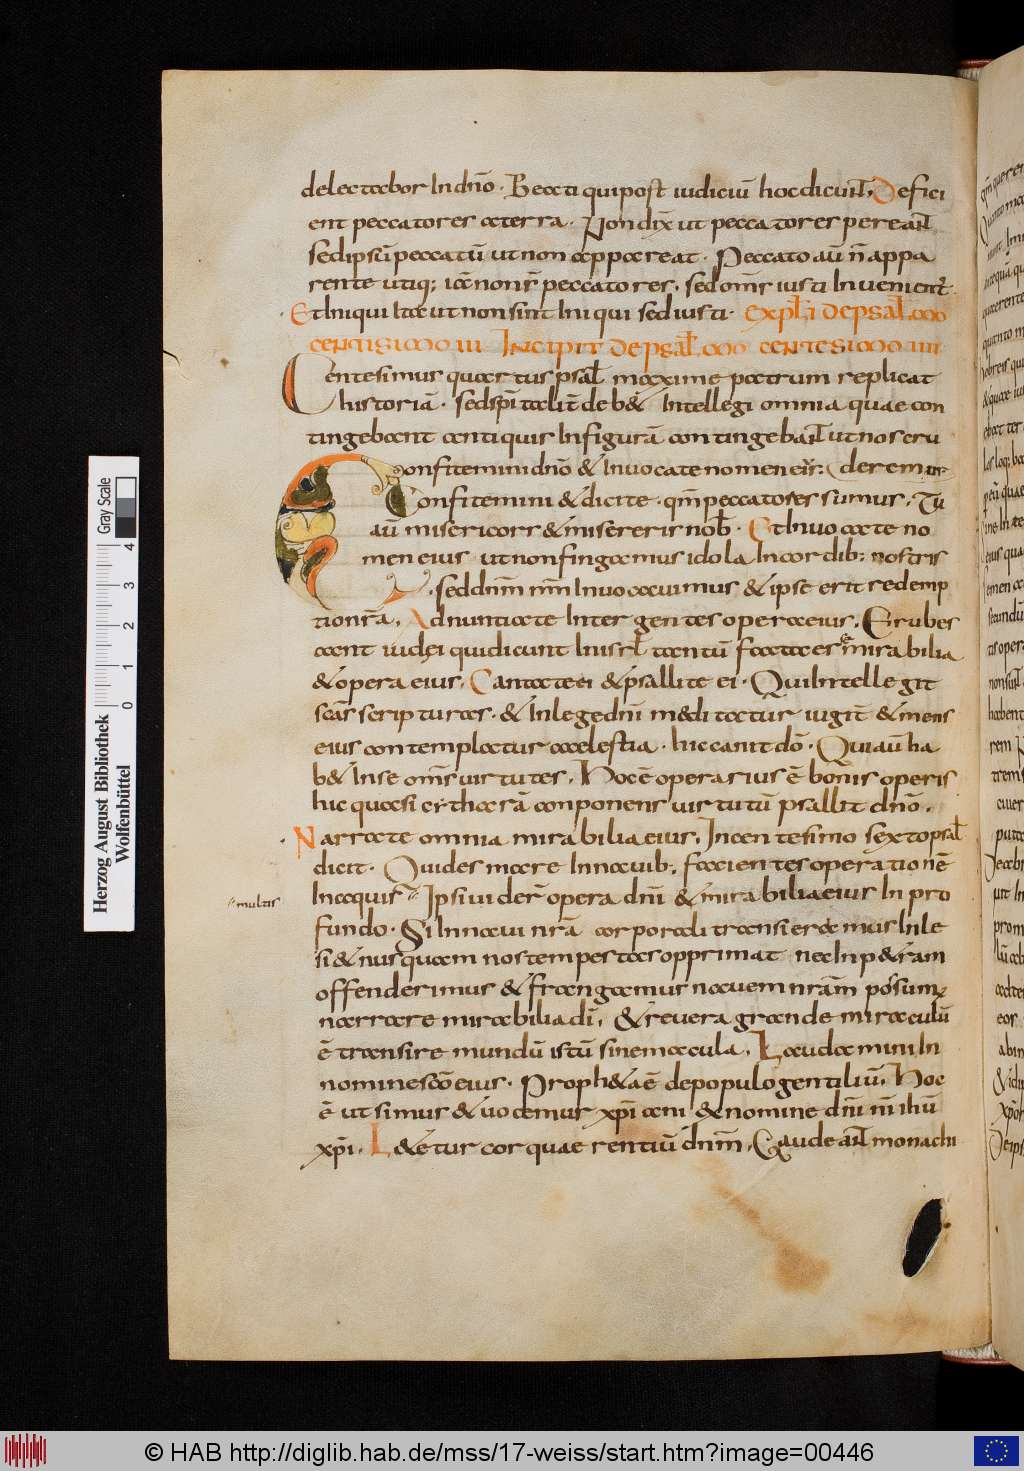 delectabor In dño. Beati qui post iudiciũ hoc dicunt. Defici
ent peccatores a terra. Non dix̃ ut peccatores pereant
sed ipsũ peccatũ ut non appareat. Peccato aũ ñ appa
rente utiq; iã non sr̃ peccatores. sed om̃s iusti Inuenientˀ
Et Iniqui Ita ut non sint Iniqui sed iusti. EXPLI DE PSAL̃MO
CENTISIMO III INCIPIT DE PSAL̃MO CENTESIMO IIII
Centesimus quartus psal̃ maxime patrum replicat
historiã. sed spĩtalit̃ de b& Intellegi omnia quae con
tingebant antiquis In figurã contingebant ut nos eru
Confitemini dño & Inuocate nomen eiˀ: deremur
Confitemini & dicite. qm̃ peccatores sumus. Tu
aũ misericors & misereris nob̃. Et Inuocate no
men eius ut non fingamus idola In cordib; nostris
sed dñm nr̃m Inuocauimus & ipse erit redemp
tio nr̃a. Adnuntiate Inter gentes opera eius. Erubes
cant iudei qui dicunt In isrl̃ tantũ factas ẽe mirabilia
& opera eius. Cantate ei & psallite ei. Qui Intellegit
scãs scripturas. & In lege dñi meditatur iugit̃ & mens
eius contemplatur caelestia. hic canit dõ. Qui aũ ha
b& In se om̃s uirtutes. Hoc ẽ operarius ẽ bonis operis
hic quasi citharã conponens uirtutũ psallit dño.
Narrate omnia mirabilia eius. In centesimo sexto psal̃
dicit. Qui des mare In nauib; facientes operationẽ
In aquis Ipsi uider̃ opera dñi & mirabilia eius In pro
multis
fundo. Si In naui nr̃a corporali transierãmus Inle
si & nusquam nos tempestas opprimat nec In p&ram
offenderimus & frangamus nauem nr̃am possumˀ
narrare mirabilia dĩ. & reuera grande miraculũ
ẽ transire mundũ istũ sine macula. Laudamini In
nomine scõ eius. Proph&a ẽ de populo gentiliũ. Hoc
ẽ ut simus & uocemur xp̃iani & nomine dñi nr̃i ihũ
xp̃i. L&etur cor quaerentiũ dñm. Gaudeant monachi
Herzog August Bibliothek
Wolfenbüttel
Gray Scale
0 1 2 3 4
© HAB http://diglib.hab.de/mss/17-weiss/start.htm?image=00446